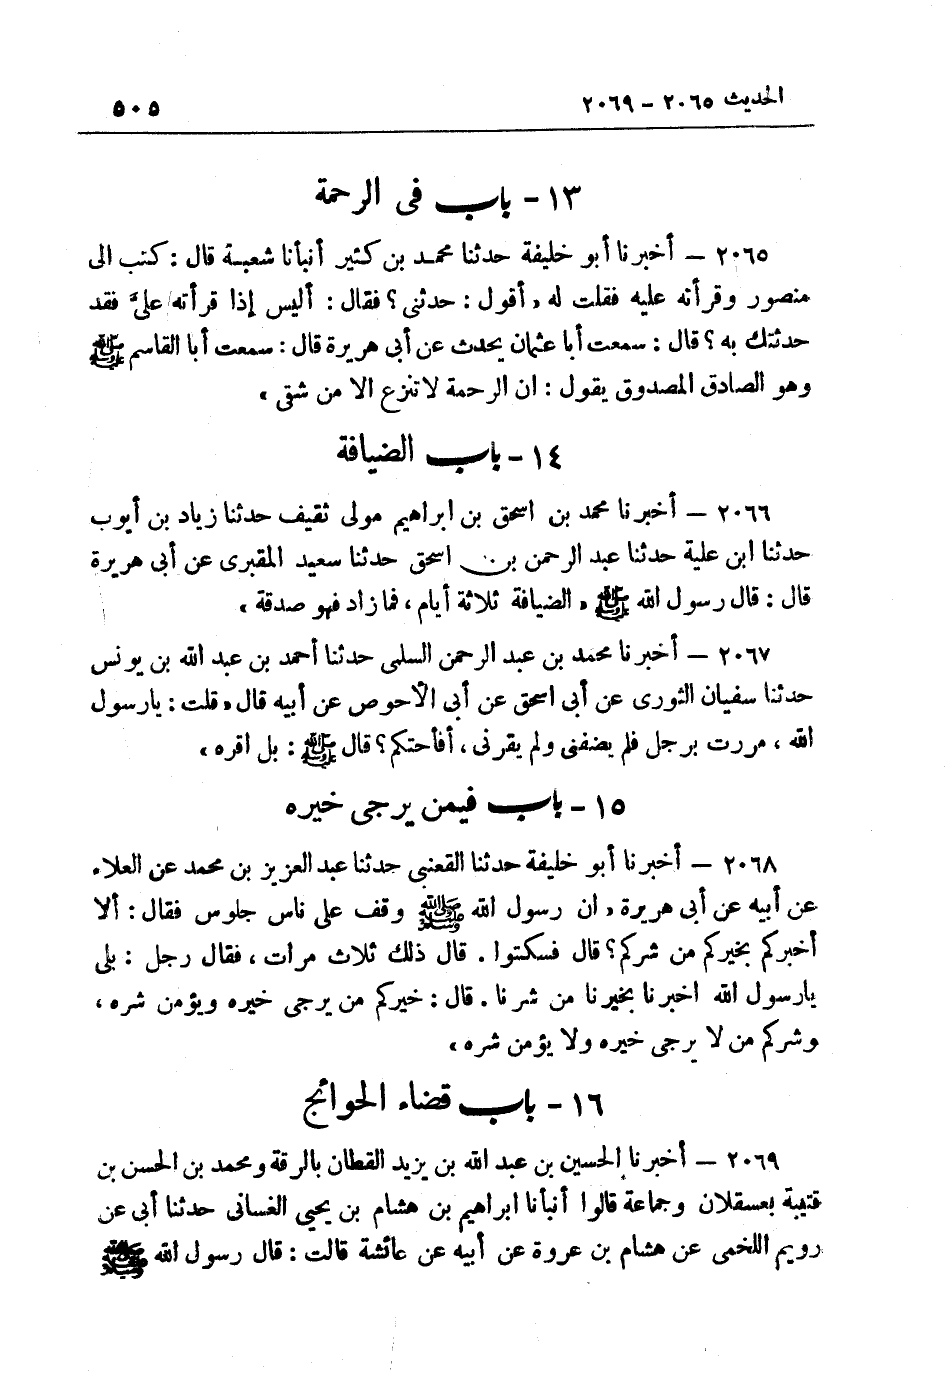 الحديث ٢٠٦٥ - ٢٠٦٩
٥٠٥
١٣ - باب فى الرحمة
٢٠٦٥ - أخبرنا أبو خليفة حدثنا محمد بن كثير أنبأنا شعبة قال : كتب الى
منصور وقرأته عليه فقلت له « أقول : حدثنى ؟ فقال : أليس إذا قرأته علىَّ فقد
حدثتك به ؟ قال : سمعت أبا عثمان يحدث عن أبى هريرة قال : سمعت أبا القاسم ﷺ
وهو الصادق المصدوق يقول : ان الرحمة لا تنزع الا من شقى »
١٤ - باب الضيافة
٢٠٦٦ - أخبرنا محمد بن اسحق بن ابراهيم مولى ثقيف حدثنا زياد بن أيوب
حدثنا ابن علية حدثنا عبد الرحمن بن اسحق حدثنا سعيد المقبرى عن أبى هريرة
قال : قال رسول الله ﷺ « الضيافة ثلاثة أيام ، فما زاد فهو صدقة »
٢٠٦٧ - أخبرنا محمد بن عبد الرحمن السلمى حدثنا أحمد بن عبد الله بن يونس
حدثنا سفيان الثورى عن أبى اسحق عن أبى الأحوص عن أبيه قال « قلت : يارسول
الله ، مررت برجل فلم يضفنى ولم يقرنى ، أفأحتكم ؟ قال ﷺ : بل اقره »
١٥ - باب فيمن يرجى خيره
٢٠٦٨ - أخبرنا أبو خليفة حدثنا القعنبى حدثنا عبد العزيز بن محمد عن العلاء
عن أبيه عن أبى هريرة « ان رسول الله ﷺ وقف على ناس جلوس فقال : ألا
أخبركم بخيركم من شركم ؟ قال فسكتوا . قال ذلك ثلاث مرات ، فقال رجل : بلى
يارسول الله اخبرنا بخيرنا من شرنا . قال : خيركم من يرجى خيره ويؤمن شره ،
وشركم من لا يرجى خيره ولا يؤمن شره »
١٦ - باب قضاء الحوائج
٢٠٦٩ - أخبرنا الحسين بن عبد الله بن يزيد القطان بالرقة ومحمد بن الحسن بن
قتيبة بعسقلان وجماعة قالوا أنبأنا ابراهيم بن هشام بن يحيى الغسانى حدثنا أبى عن
رويم اللخمى عن هشام بن عروة عن أبيه عن عائشة قالت : قال رسول الله ﷺ